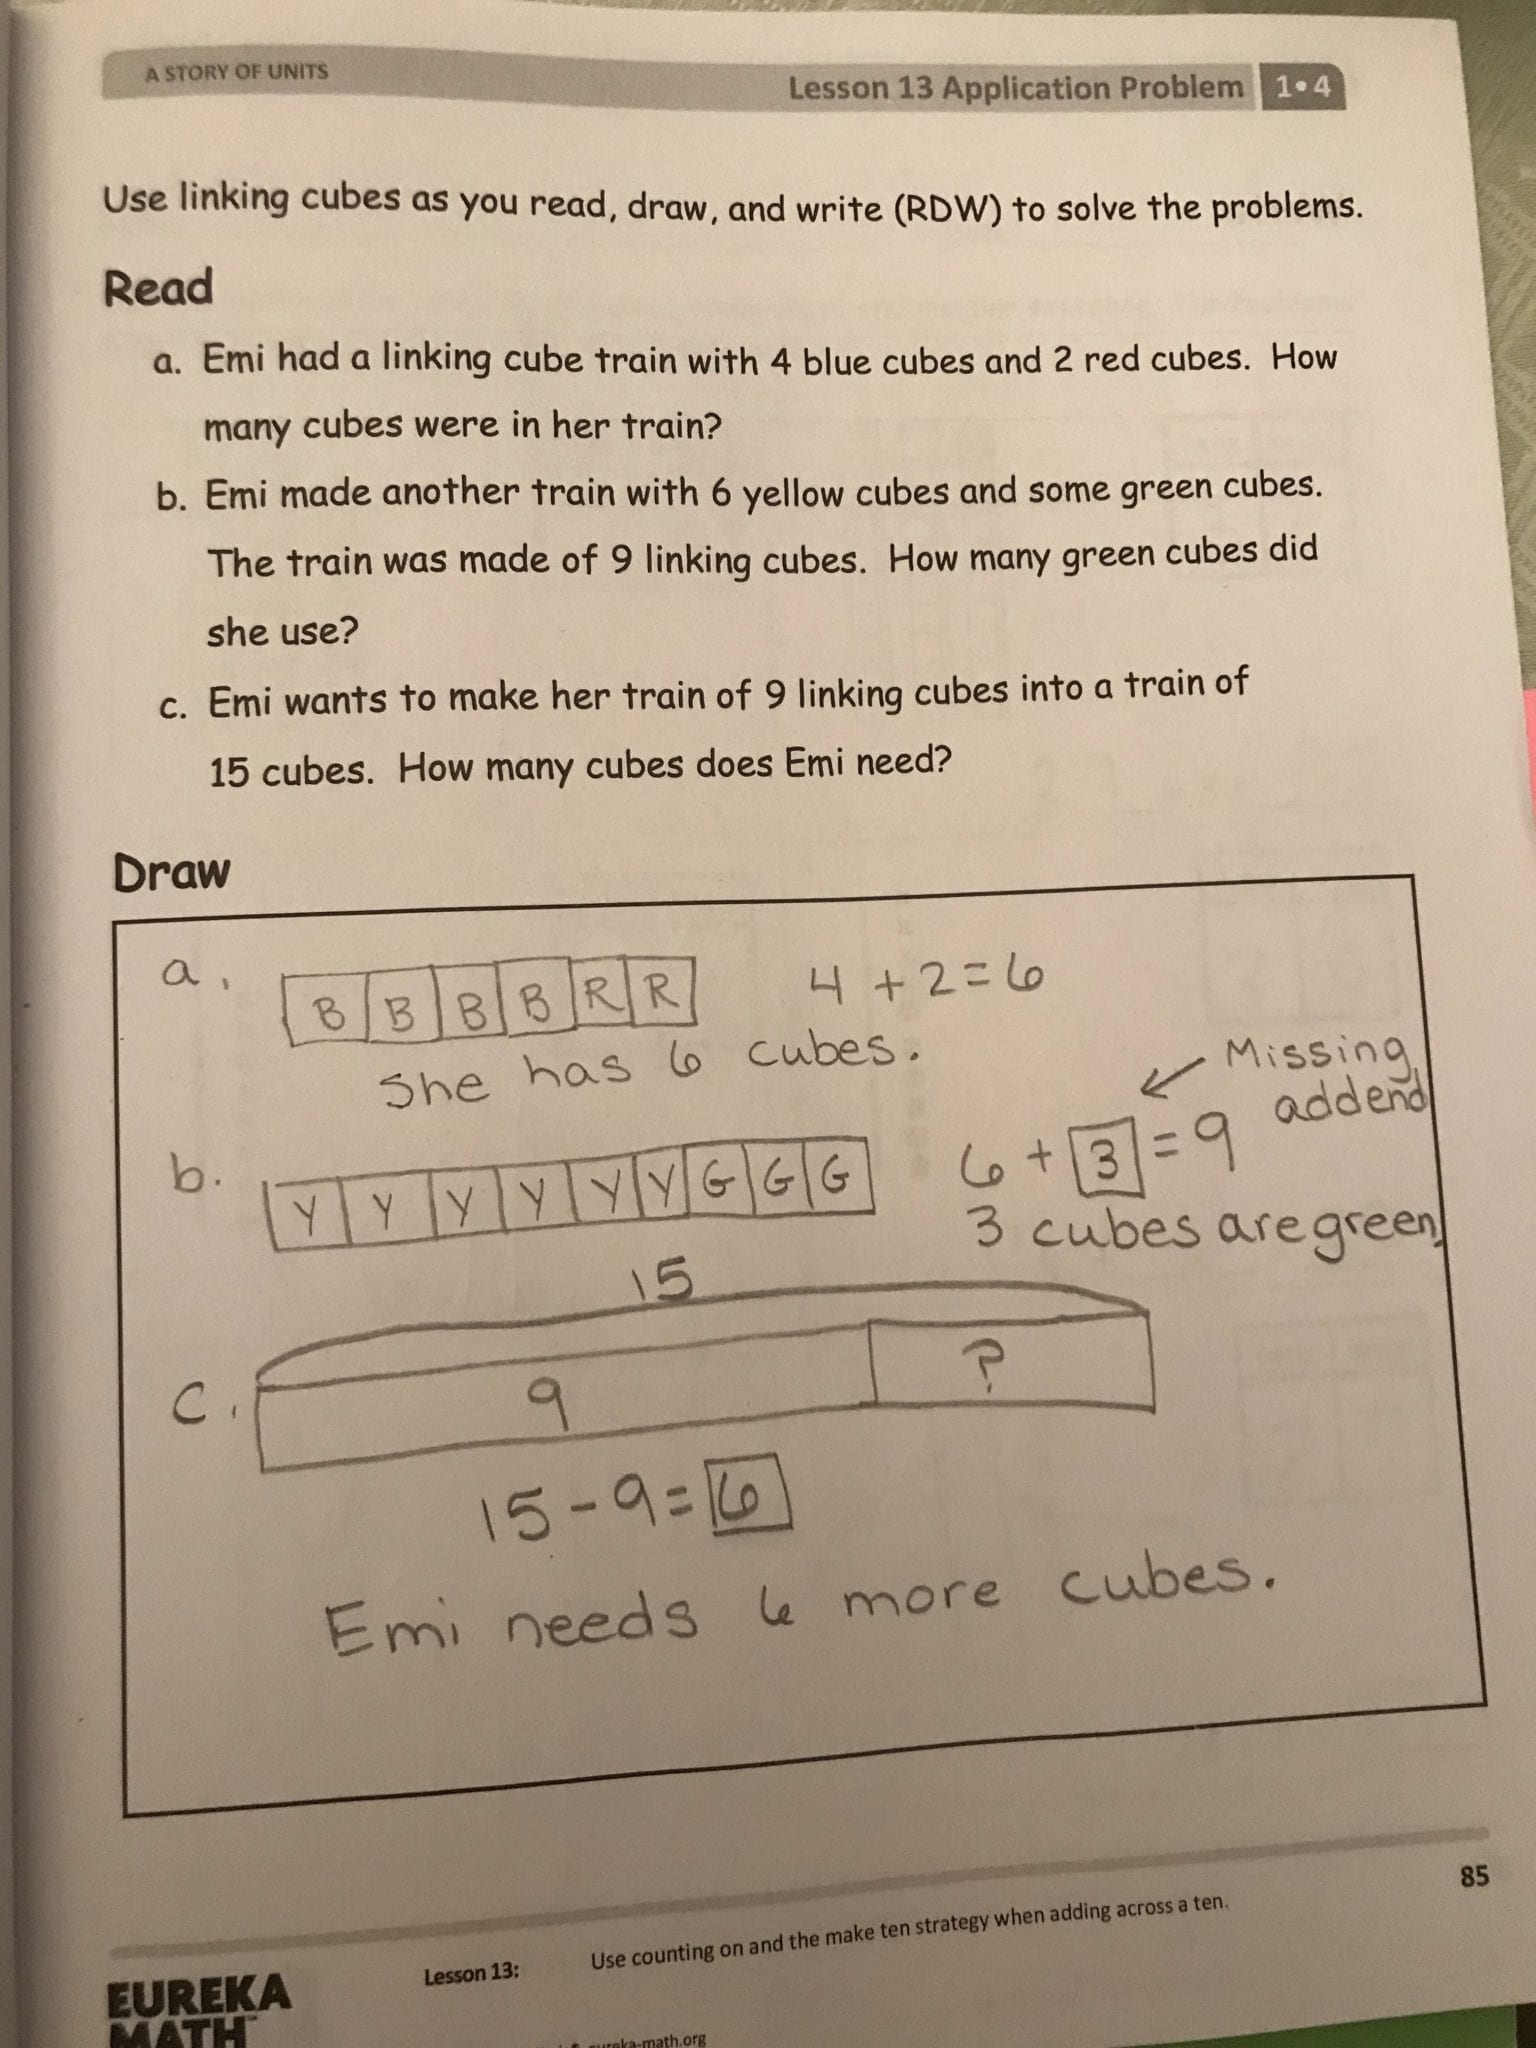 A STORY OF UNITS
Lesson 13 Application Problem 1•4
Use linking cubes as you read, draw, and write (RDW) to solve the problems.
Read
a. Emi had a linking cube train with 4 blue cubes and 2 red cubes. How
many cubes were in her train?
b. Emi made another train with 6 yellow cubes and some green cubes.
The train was made of 9 linking cubes. How many green cubes did
she use?
c. Emi wants to make her train of 9 linking cubes into a train of
15 cubes. How many cubes does Emi need?
Draw
a. B B B B R R 4 + 2 = 6
She has 6 cubes.
Missing
addend
b. Y Y Y Y Y Y G G G 6 + 3 = 9
3 cubes are green.
15
c. 9 ?
15 - 9 = 6
Emi needs 6 more cubes.
85
Lesson 13: Use counting on and the make ten strategy when adding across a ten.
EUREKA
MATH™
eureka-math.org